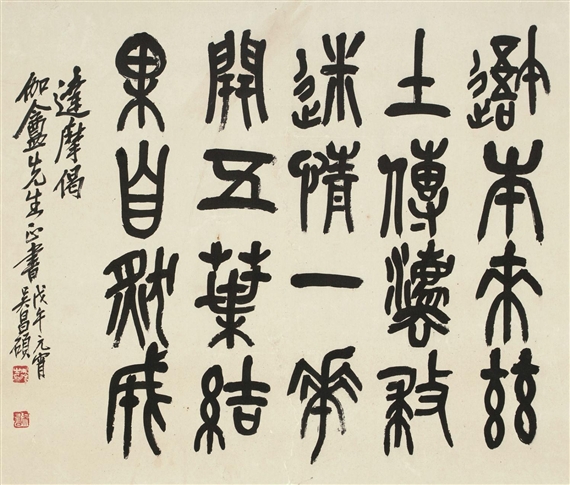 吾本來茲
土傳灋救
迷情一華
開五葉結
果自然成
達摩偈
伽盦先生正書
戊午元宵
吳昌碩